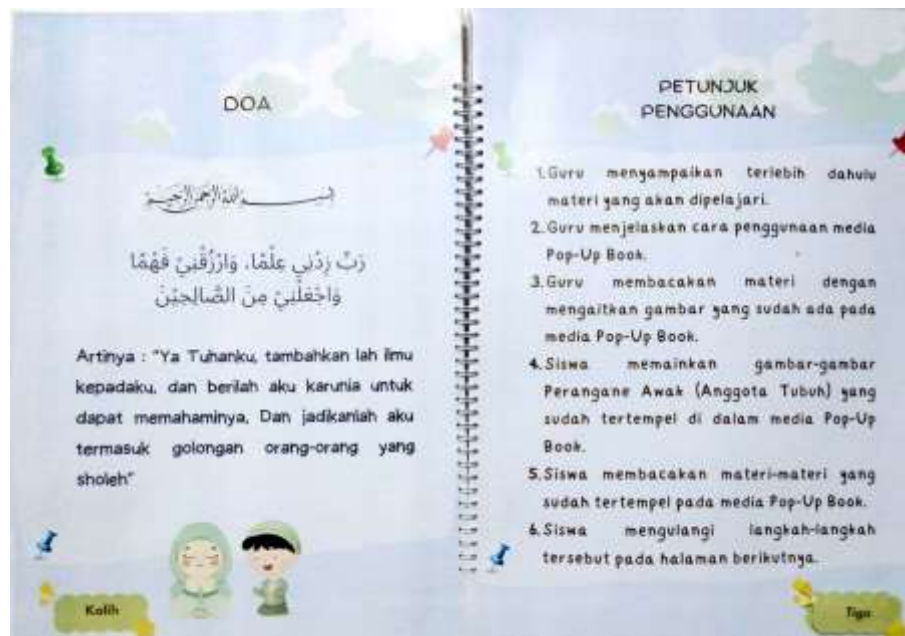 DOA
بسم الله الرحمن الرحيم
رَبِّ زِدْنِي عِلْمًا، وَارْزُقْنِيْ فَهْمًا
وَاجْعَلْنِيْ مِنَ الصَّالِحِيْنَ
Artinya : "Ya Tuhanku, tambahkan lah ilmu
kepadaku, dan berilah aku karunia untuk
dapat memahaminya, Dan jadikanlah aku
termasuk golongan orang-orang yang
sholeh"
Kalih
PETUNJUK
PENGGUNAAN
1. Guru menyampaikan terlebih dahulu
materi yang akan dipelajari.
2. Guru menjelaskan cara penggunaan media
Pop-Up Book.
3. Guru membacakan materi dengan
mengaitkan gambar yang sudah ada pada
media Pop-Up Book.
4. Siswa memainkan gambar-gambar
Perangane Awak (Anggota Tubuh) yang
sudah tertempel di dalam media Pop-Up
Book.
5. Siswa membacakan materi-materi yang
sudah tertempel pada media Pop-Up Book.
6. Siswa mengulangi langkah-langkah
tersebut pada halaman berikutnya.
Tiga